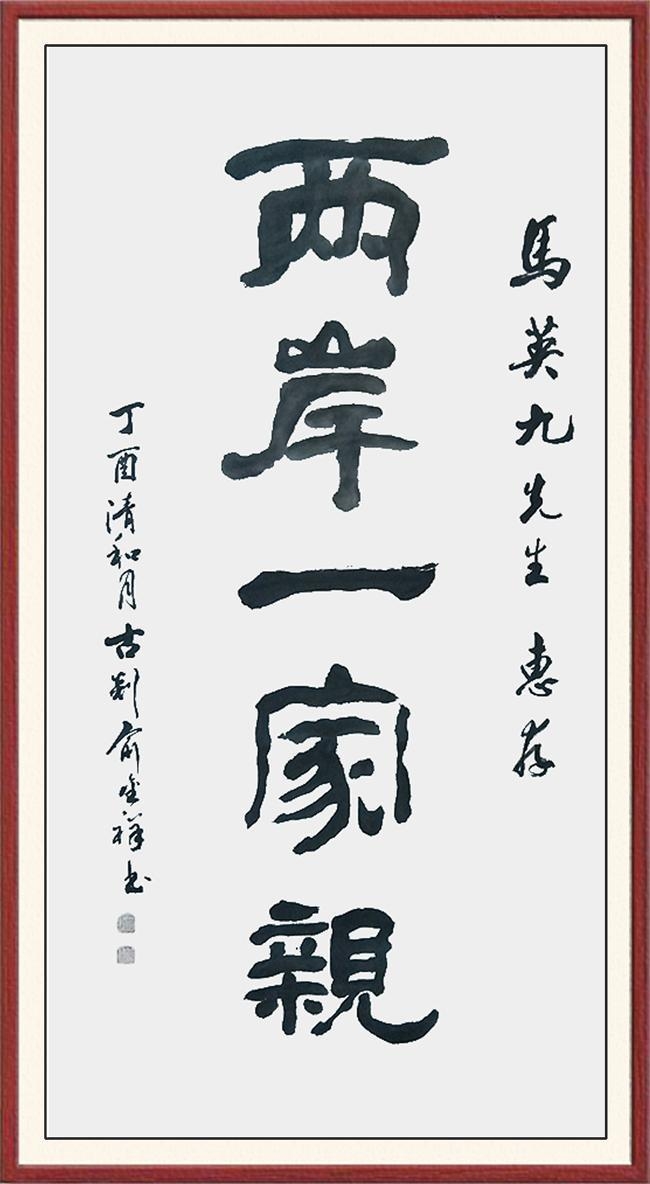 馬英九先生 惠存
两岸一家親
丁酉清和月古剡俞金祥书